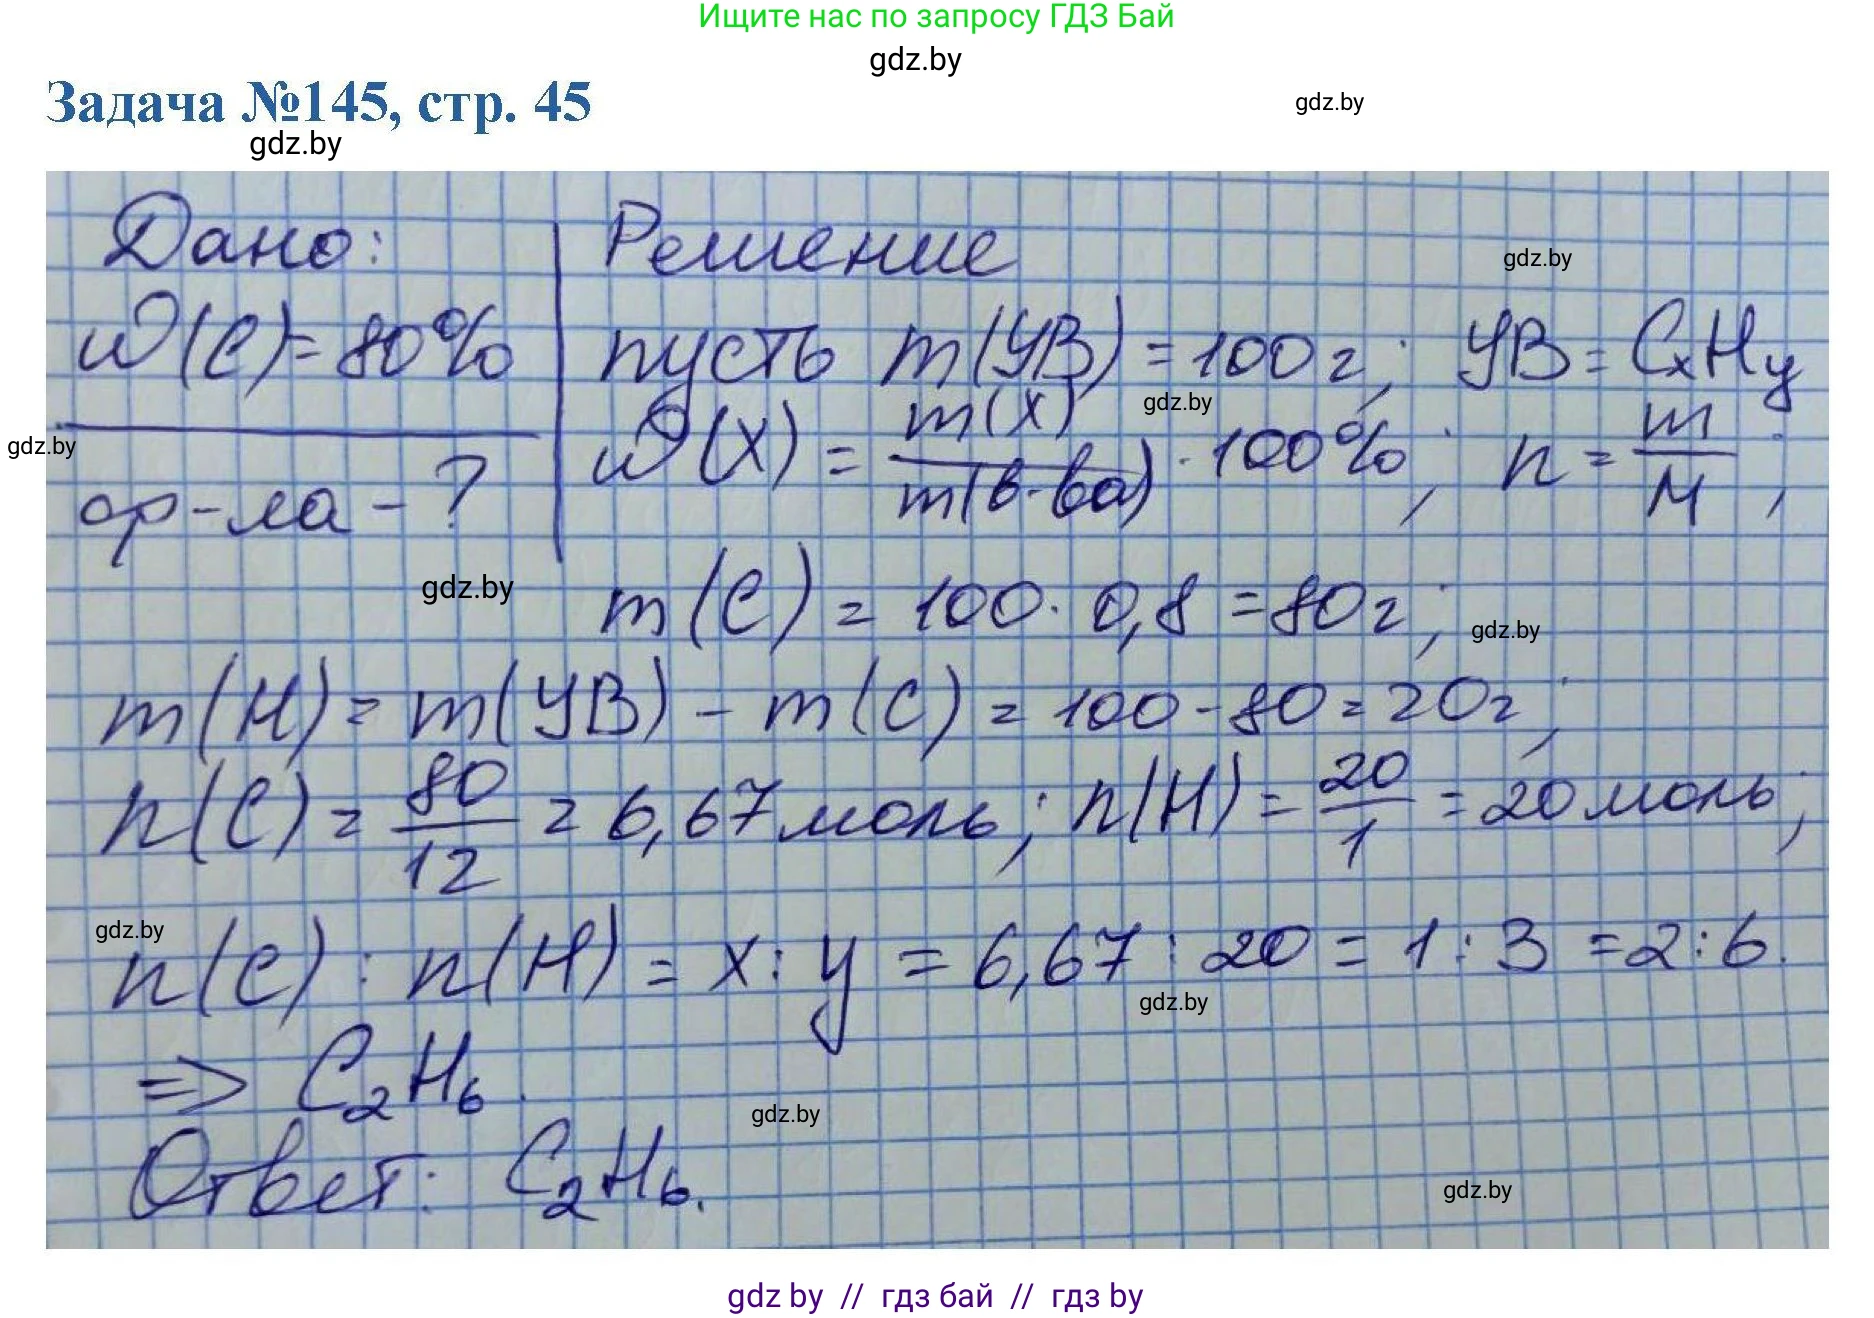 Ищите нас по запросу ГДЗ Бай
gdz.by
Задача №145, стр. 45
gdz.by
gdz.by
Дано:
Решение
gdz.by
w(C)=80%
пусть m(УВ)=100г; УВ=CxHy
gdz.by
gdz.by
w(X) = m(X)/m(в-ва) · 100%; n = m/M;
ф-ла - ?
gdz.by
m(C) = 100 · 0,8 = 80г;
gdz.by
m(H) = m(УВ) - m(C) = 100 - 80 = 20г;
n(C) = 80/12 = 6,67 моль; n(H) = 20/1 = 20 моль;
gdz.by
n(C) : n(H) = x : y = 6,67 : 20 = 1 : 3 = 2 : 6.
gdz.by
=> C2H6.
gdz.by
Ответ: C2H6.
gdz.by
gdz by // гдз бай // гдз by